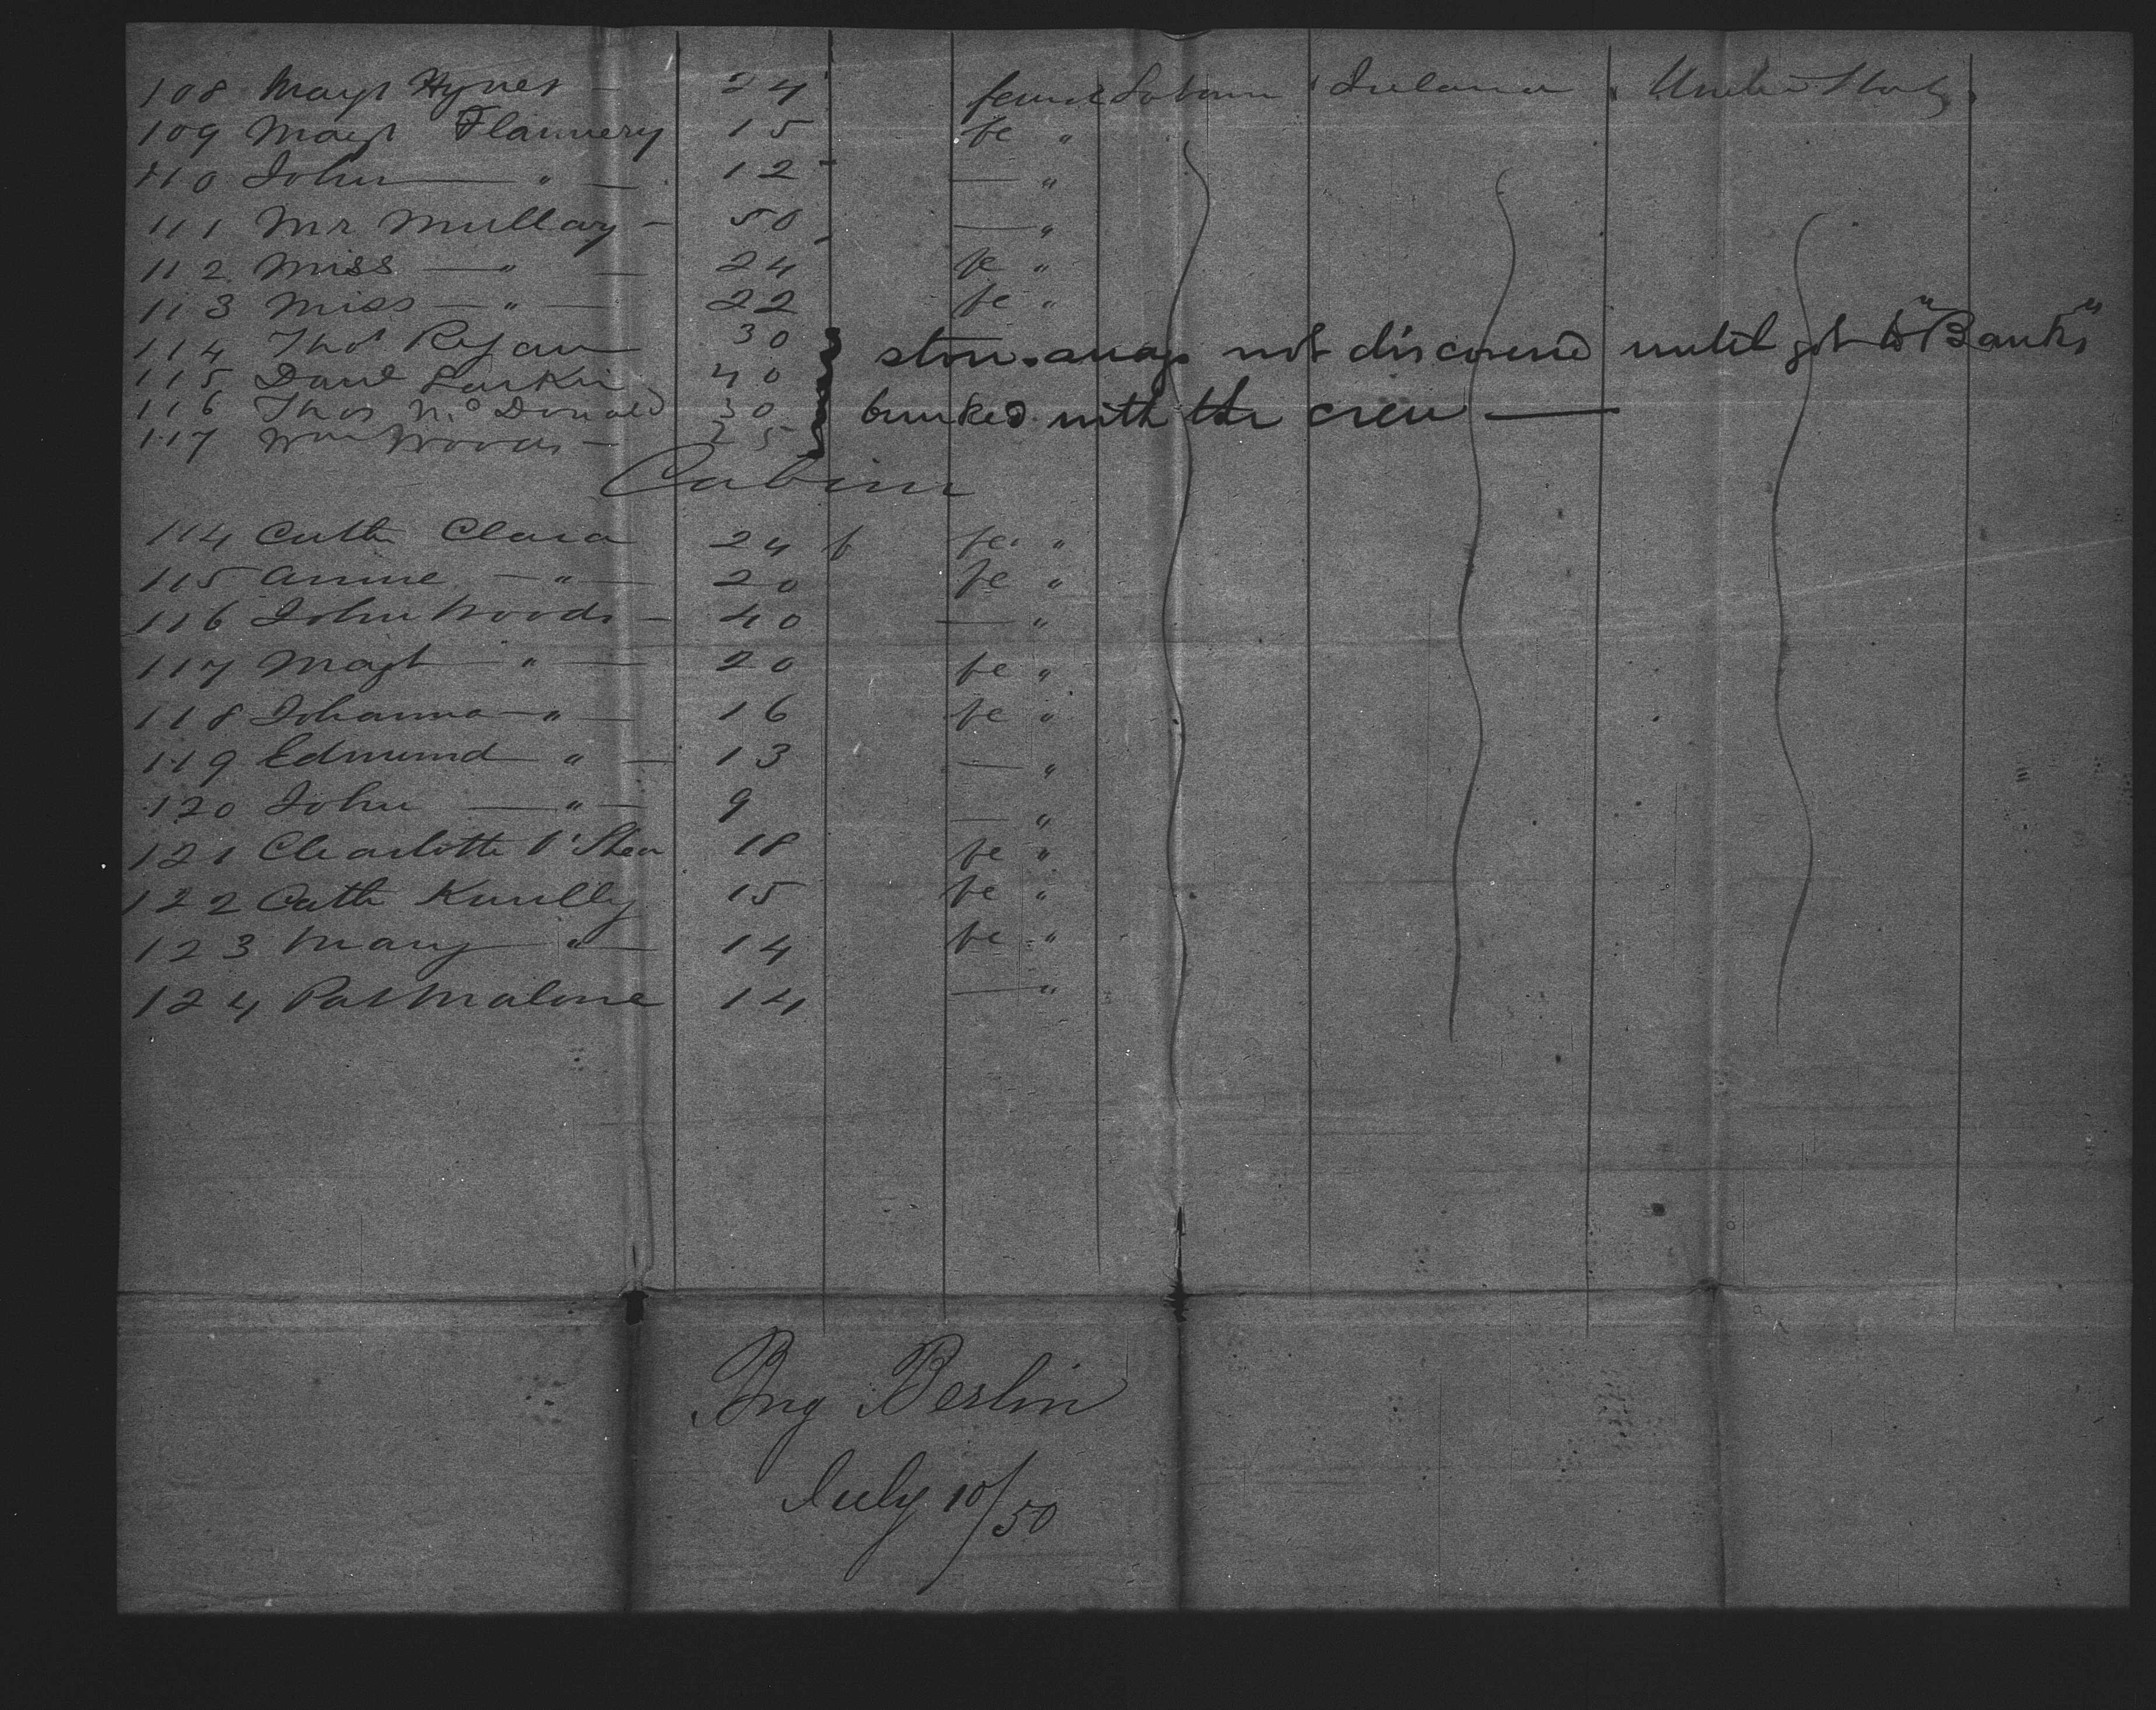 108 Magt Hynes — 24 female Laborer Ireland United States
109 Magt Flannery 15 fe "
110 John — " — 12 — "
111 Mr Mullay — 50 — "
112 Miss — " — 24 fe "
113 Miss — " — 22 fe "
114 Thos Ryan 30 } stowaways not discovered until got to "Banks"
115 Danl Larkin 40
116 Thos McDonald 30 bunked with the crew —
117 Wm Woods — 25
Cabin
114 Cath Clara 24 f fe "
115 Anne — " — 20 fe "
116 John Woods — 40 — "
117 Magt — " — 20 fe "
118 Johanna — " — 16 fe "
119 Edmund " — 13 — "
120 John — " — 9 — "
121 Charlotte O'Shea 18 fe "
122 Cath 15 fe "
123 Mary " — 14 fe "
124 Pat Malone 14 — "
Brig Berlin
July 10/50